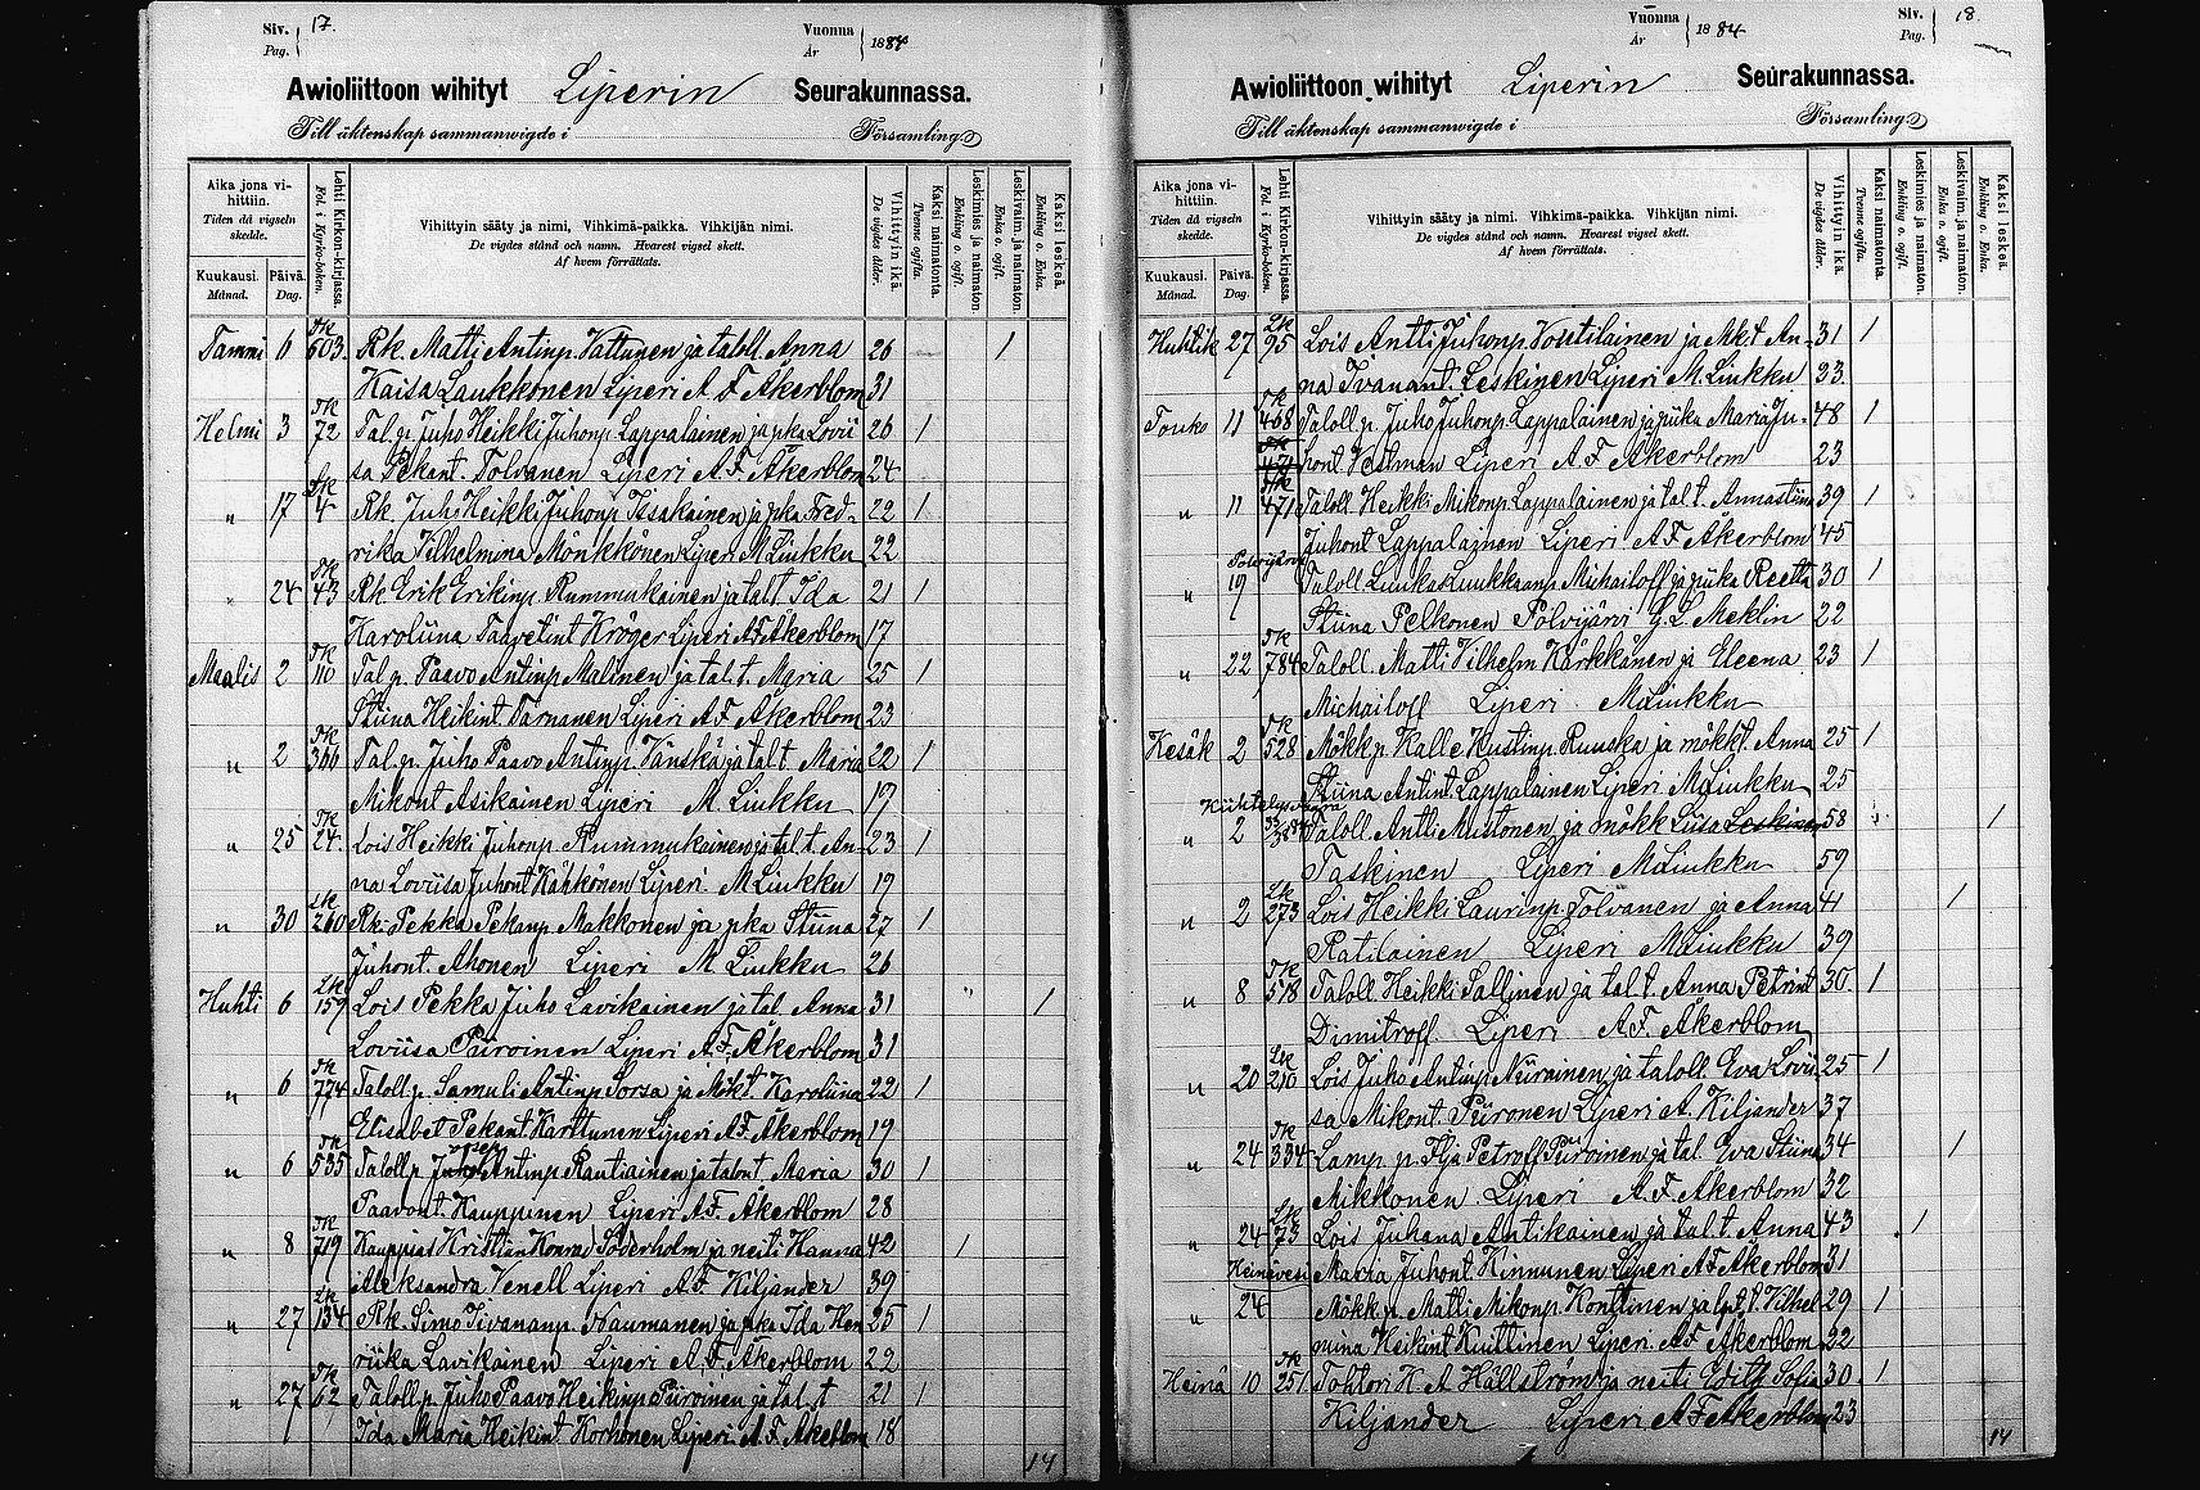 Siv. 17.
Pag.
Vuonna 1884
År
Awioliittoon wihityt Liperin Seurakunnassa.
Till äktenskap sammanwigde i Församling
Aika jona vihittiin.
Tiden då vigseln skedde.
Kuukausi. Månad.
Päivä. Dag.
Lehti Kirkon-kirjassa.
Fol. i Kyrko-boken.
Vihittyin sääty ja nimi, Vihkimä-paikka. Vihkijän nimi.
De vigdes stånd och namn. Hvarest vigsel skett.
Af hvem förrättats.
Vihittyin ikä.
De vigdes ålder.
Kaksi naimatonta.
Tvenne ogifta.
Leskimies ja naimaton.
Enkling o. ogift.
Leskivaim. ja naimaton.
Enka o. ogift.
Kaksi leskeä.
Enkling o. Enka.
Tammi 6 Tk 603. Rk. Matti Antinp. Vattunen ja taloll. Anna 26 1
Kaisa Laukkonen Liperi A F Åkerblom 31
Helmi 3 Tk 72 Tal. p. Juho Heikki Juhonp. Lappalainen ja pka Lovii 26 1
sa Pekant. Tolvanen Liperi A. F. Åkerblom 24
" 17 Lk 4 Rk. Juho Heikki Juhonp. Iisakainen ja pka Fred- 22 1
rika Vilhelmina Mönkkönen Liperi M Liukku 22
" 24 Tk 43 Rk. Erik Erikinp. Rummukainen ja tal.t. Ida 21 1
Karoliina Taavetint Kröger Liperi A F Åkerblom 17
Maalis 2 Tk 110 Tal p. Paavo Antinp. Malinen ja tal. t. Maria 25 1
Stiina Heikint. Tarnanen Liperi A F Åkerblom 23
" 2 Tk 366 Tal. p. Juho Paavo Antinp. Vänskä ja tal t. Maria 22 1
Mikont Asikainen Liperi M. Liukku 17
" 25 Tk 24. Lois Heikki Juhonp. Rummukainen ja tal. t. An- 23 1
na Loviisa Juhont Kähkönen Liperi. M Liukku 19
" 30 Lk 260 Rk. Pekka Pekanp. Makkonen ja pka Stiina 27 1
Juhont. Ahonen Liperi M Liukku 26
Huhti 6 Lk 159 Lois Pekka Juho Lavikainen ja tal. Anna 31 1
Loviisa Piiroinen Liperi A. F. Åkerblom 31
" 6 Tk 774 Taloll. p. Samuli Antinp Sorsa ja Mökt. Karoliina 22 1
Elisabet Pekant. Karttunen Liperi A F. Åkerblom 19
" 6 Tk 535 Taloll p Antinp Rautiainen ja talont. Maria 30 1
Paavont. Kauppinen Liperi A. F. Åkerblom 28
" 8 Tk 719 Kauppias Kristian Konrad Söderholm ja neiti Hanna 42 1
Aleksandra Venell Liperi A. F. Kiljander 39
" 27 Lk 134 Rk. Simo Iivananp. Naumanen ja pka Ida Hen 25 1
riika Lavikainen Liperi A. F. Åkerblom 22
" 27 Tk 62 Taloll. p. Juho Paavo Heikinp Piiroinen ja tal. t 21 1
Ida Maria Heikint Korhonen Liperi A F. Åkeblom 18
14
Vuonna 1884 Siv. 18.
År Pag.
Awioliittoon wihityt Liperin Seurakunnassa.
Till äktenskap sammanwigde i Församling
Aika jona vihittiin.
Tiden då vigseln skedde.
Kuukausi. Månad.
Päivä. Dag.
Lehti Kirkon-kirjassa.
Fol. i Kyrko-boken.
Vihittyin sääty ja nimi. Vihkimä-paikka. Vihkijän nimi.
De vigdes stånd och namn. Hvarest vigsel skett.
Af hvem förrättats.
Vihittyin ikä.
De vigdes ålder.
Kaksi naimatonta.
Tvenne ogifta.
Leskimies ja naimaton.
Enkling o. ogift.
Leskivaim. ja naimaton.
Enka o. ogift.
Kaksi leskeä.
Enkling o. Enka.
Huhtik 27 Lk 95 Lois Antti Juhonp. Voutilainen ja Mk.t An- 31 1
na Ivanant. Leskinen Liperi M. Liukku 33
Touko 11 Tk 468 Taloll p. Juho Juhonp. Lappalainen ja piika Maria Ju- 48 1
471 hont. Vestman Liperi A. F Åkerblom 23
" 11 Tk 471 Taloll Heikki Mikonp. Lappalainen ja tal t. Annastiina 39 1
Juhont Lappalainen Liperi A F Åkerblom 45
" 19 Polvijärvi Taloll Luukas Luukkaanp Michailoff ja piika Reetta 30 1
Stiina Pelkonen Polvijärvi G. L. Meklin 22
" 22 Tk 784 Taloll. Matti Vilhelm Kärkkänen ja Eleena 23 1
Michailoff Liperi M Liukku
Kesäk 2 Tk 528 Mökk p. Kalle Kustinp. Ruuska ja mökkt. Anna 25 1
Stiina Antint. Lappalainen Liperi. M Liukku 25
Kiihtelysvaara
" 2 Taloll. Antti Mustonen ja mökk Liisa Leskinen 58 1
Taskinen Liperi M Liukku 59
" 2 Lk 273 Lois Heikki Laurinp. Tolvanen ja Anna 41 1
Ratilainen Liperi M Liukku 39
" 8 Tk 518 Taloll. Heikki Sallinen ja tal. t. Anna Petrint 30. 1
Dimitroff. Liperi A F. Åkerblom
" 20 Lk 210 Lois Juho Antinp Niirainen ja taloll. Eva Lovii 25 1
sa Mikont. Piironen Liperi A. Kiljander 37
" 24 Tk 334 Lamp. p. Ilja Petroff Piiroinen ja tal. Eva Stiina 34 1
Mikkonen. Liperi A. F. Åkerblom 32
" 24 Lk 73 Lois Juhana Antikainen ja tal. t. Anna 43 1
Maria Juhont. Kinnunen Liperi A F Åkerblom 31
Heinävesi
" 24 Mökk p. Matti Mikonp. Konttinen ja lpt. t. Vilhel 29 1
mina Heikint Kuittinen Liperi. A F Åkerblom 22
Heinä 10 Tk 251 Tohtori K. A Hällström ja neiti Edith Sofia 30. 1
Kiljander Liperi. A F Åkerblom 23
14